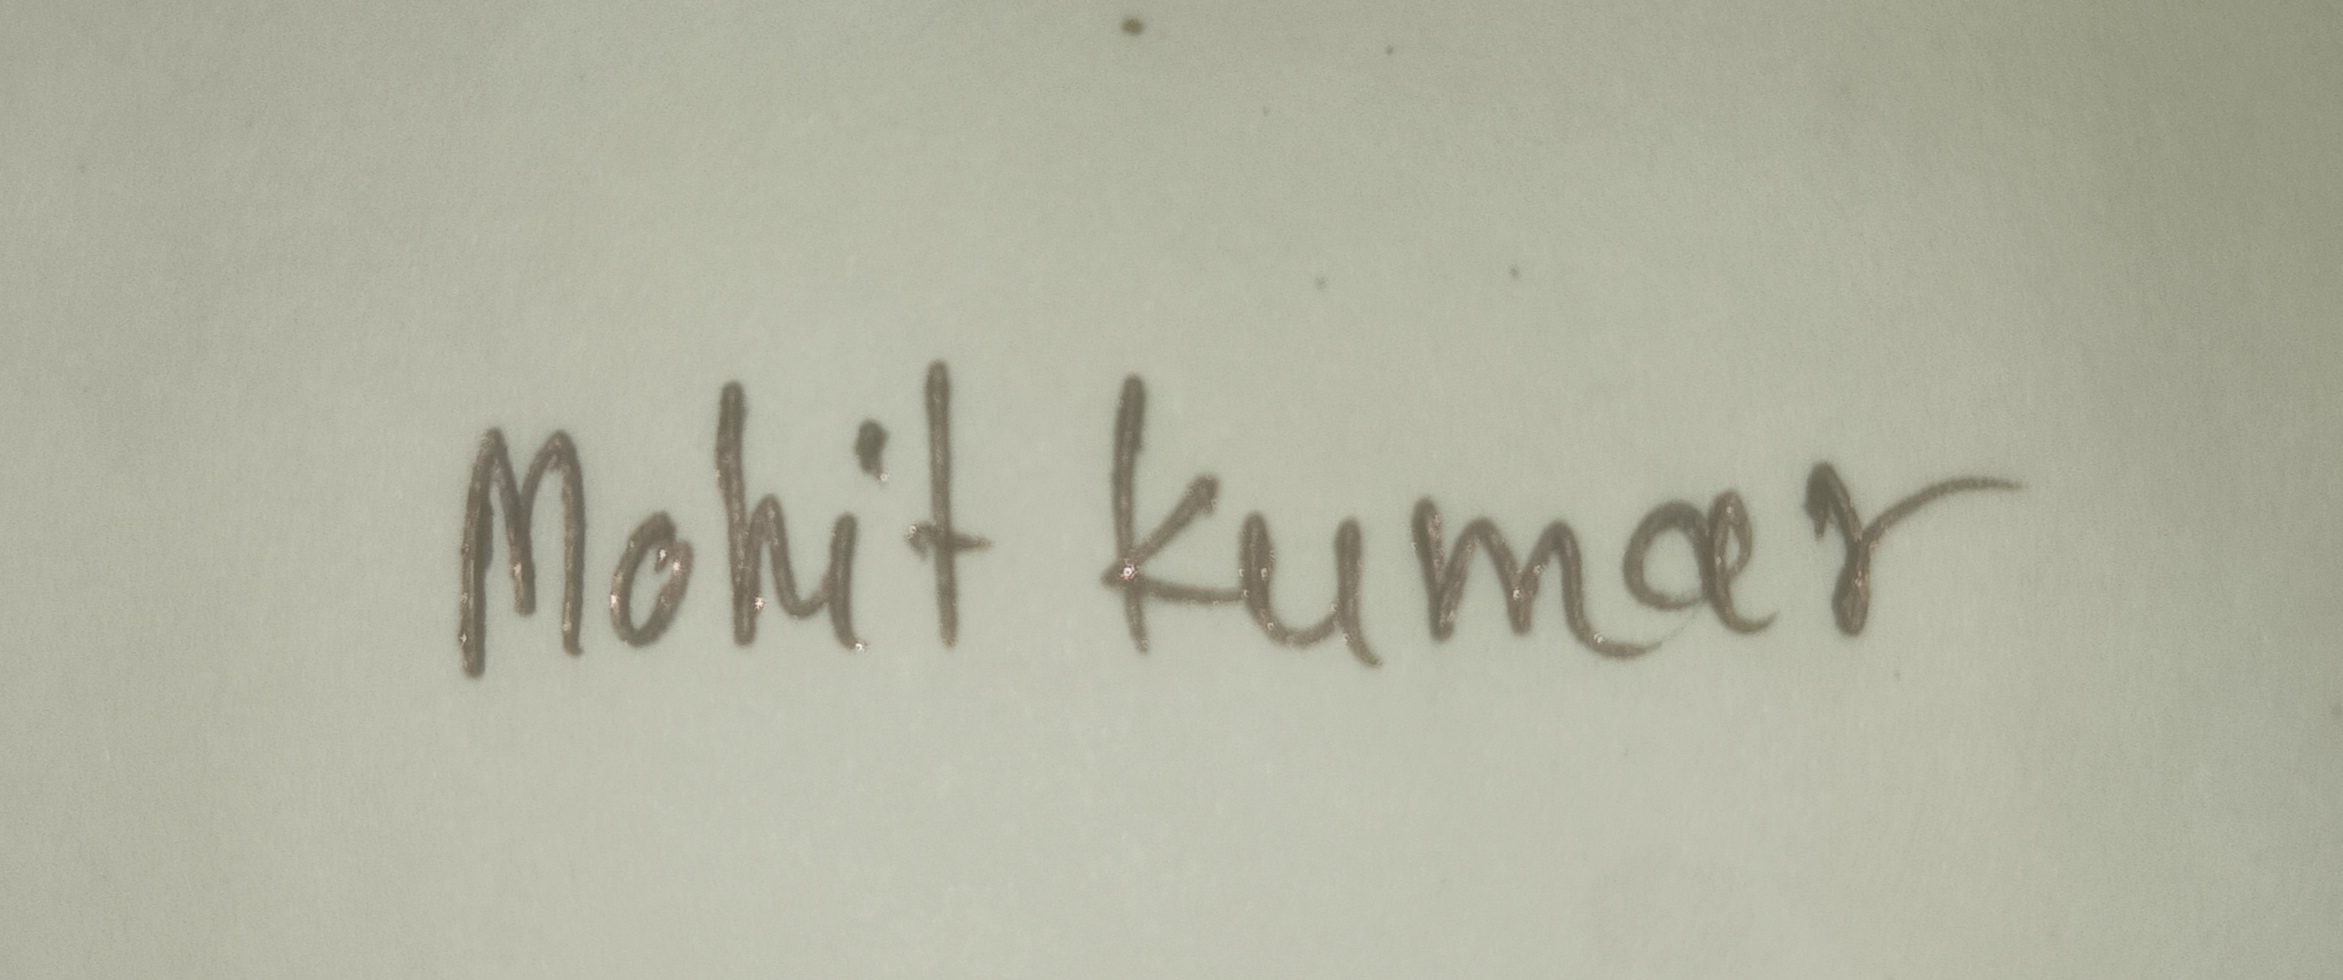 Mohit kumar